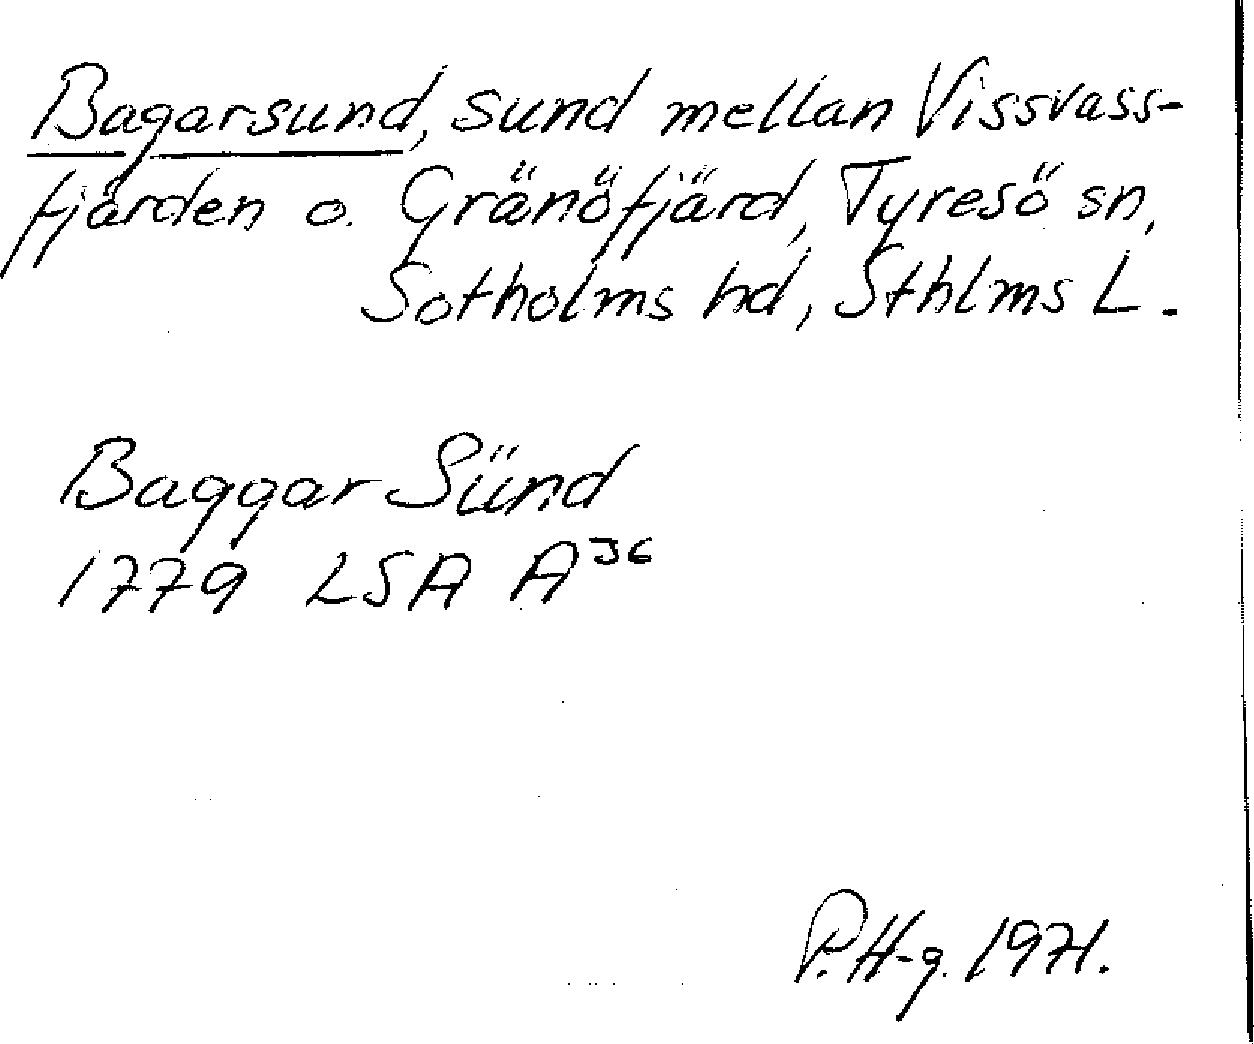 Bagarsund, sund mellan Vissvass-
fjärden o. Gränöfjärd, Tyresö sn,
Sotholms hd, Sthlms L.
Baggar Sünd
1779 LSA A36
P. H-g. 1971.